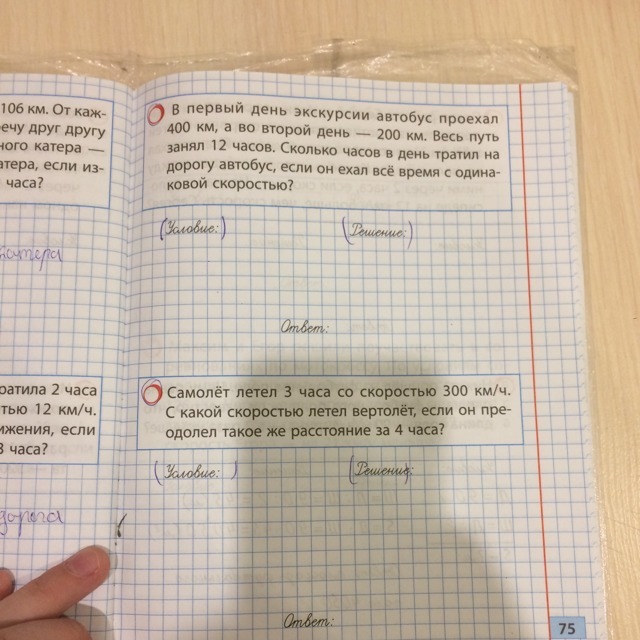 106 км. От каж-
речу друг другу
ного катера —
атера, если из-
часа?
В первый день экскурсии автобус проехал
400 км, а во второй день — 200 км. Весь путь
занял 12 часов. Сколько часов в день тратил на
дорогу автобус, если он ехал всё время с одина-
ковой скоростью?
(Условие:) (Решение:)
Ответ:
ратила 2 часа
тью 12 км/ч.
ижения, если
3 часа?
дорога
Самолёт летел 3 часа со скоростью 300 км/ч.
С какой скоростью летел вертолёт, если он пре-
одолел такое же расстояние за 4 часа?
(Условие:) (Решение:
Ответ:
75